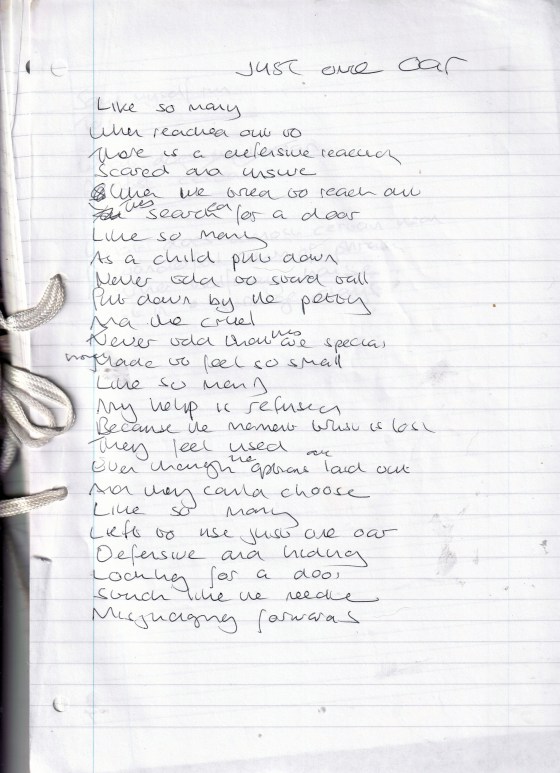 Just one oar
Like so many
When reached out to
There is a defensive reaction
Scared and unsure
When he tried to reach out
search for a door
Like so many
As a child put down
Never told to stand tall
Put down by the petty
And the cruel
Never told that he's special
Made to feel so small
Like so many
My help is refused
Because the moment trust is lost
They feel used
Even though the options are laid out
And they could choose
Like so many
Left to use just one oar
Defensive and hiding
Looking for a door
like the needle
Misjudging forwards